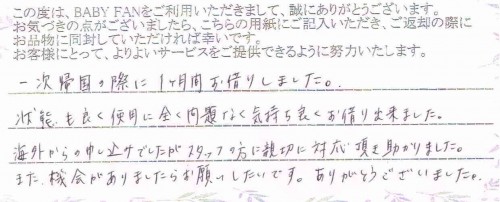 この度は、BABY FANをご利用いただきまして、誠にありがとうございます。
お気づきの点がございましたら、こちらの用紙にご記入いただき、ご返却の際に
お品物に同封していただければ幸いです。
お客様にとって、よりよいサービスをご提供できるように努力いたします。
一次帰国の際に1ヶ月間お借りしました。
状態も良く使用に全く問題なく気持ち良くお借り出来ました。
海外からの申し込みでしたがスタッフの方に親切に対応頂き助かりました。
また、機会がありましたらお願いしたいです。ありがとうございました。